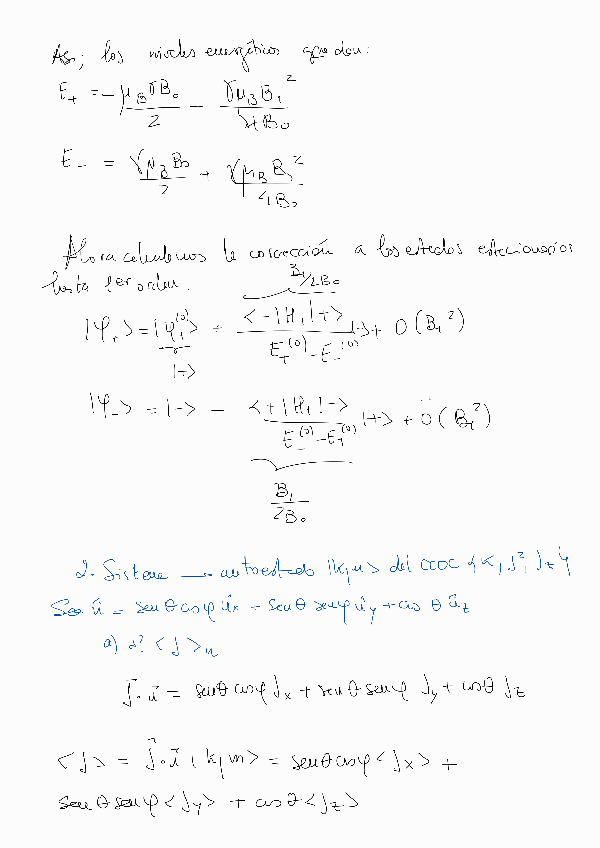 Así, los niveles energéticos quedan:
E₊ = - μ_B γ B₀ / 2 - γ μ_B B₁² / 4 B₀
E₋ = γ μ_B B₀ / 2 + γ μ_B B₁² / 4 B₀
Ahora calculamos la corrección a los estados estacionarios
hasta 1er orden.
B₁/2B₀
|φ₊> = |φ₊⁽⁰⁾> + <-|H₁|+> / E₊⁽⁰⁾ - E₋⁽⁰⁾ |-> + O(B₁²)
|+>
|φ₋> = |-> - <+|H₁|-> / E₋⁽⁰⁾ - E₊⁽⁰⁾ |+> + O(B₁²)
B₁ / 2B₀
2. Sistema → autoestado |k,j,m> del CCOC {K, J², Jz}
Sea û = senθ cosφ ûx + senθ senφ ûy + cosθ ûz
a) ¿? <J>u
J⃗·u⃗ = senθ cosφ Jx + senθ senφ Jy + cosθ Jz
<J> = J⃗·u⃗ |k,j,m> = senθ cosφ <Jx> +
senθ senφ <Jy> + cosθ <Jz>